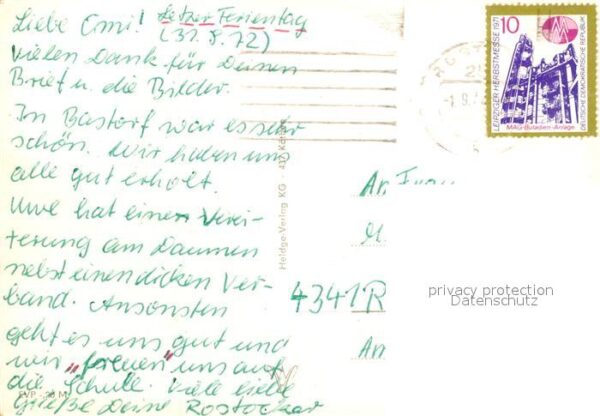 Liebe Omi! Letzter Ferientag
(31.8.72)
Vielen Dank für Deinen
Brief u. die Bilder.
In Bastorf war es sehr
schön. Wir haben uns
alle gut erholt.
Uwe hat einen Verei-
terung am Daumen
nebst einen dicken Ver-
band. Ansonsten
geht es uns gut und
wir "freuen" uns auf
die Schule. Viele liebe
Grüße Deine Rostocker
EVP
Heldge-Verlag KG
10
LEIPZIGER HERBSTMESSE 1971
DEUTSCHE DEMOKRATISCHE REPUBLIK
MAG-Butadien-Anlage
An
4341 R
An
privacy protection
Datenschutz